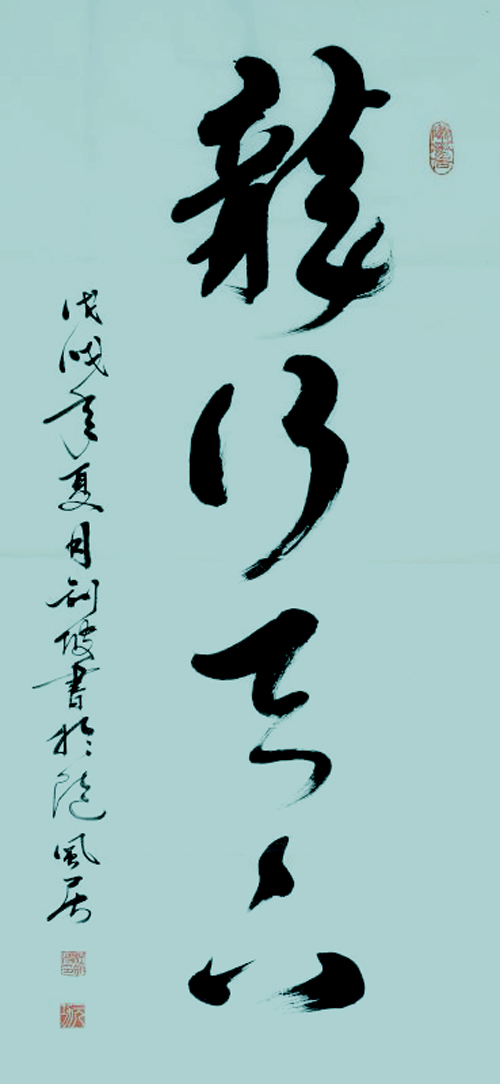 龍行天下
戊戌年夏月刘波書於隨風居